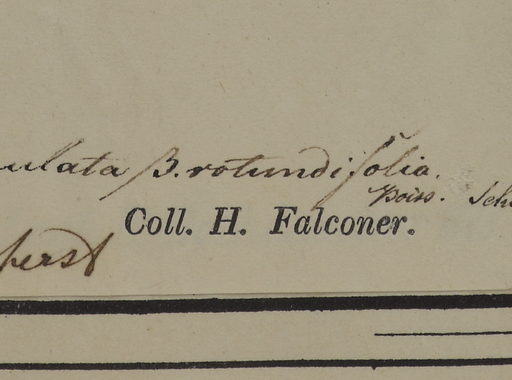 ulata β. rotundifolia.
Boiss. Sch
Coll. H. Falconer.
herst